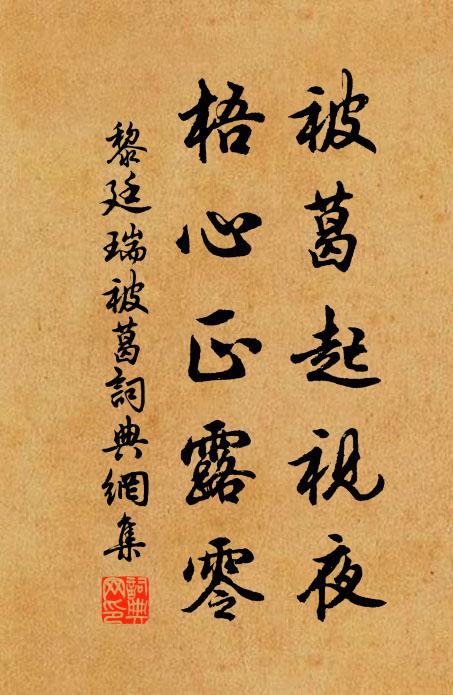 被葛起視夜
梧心正露零
黎廷瑞被葛詞典網集
詞典網印